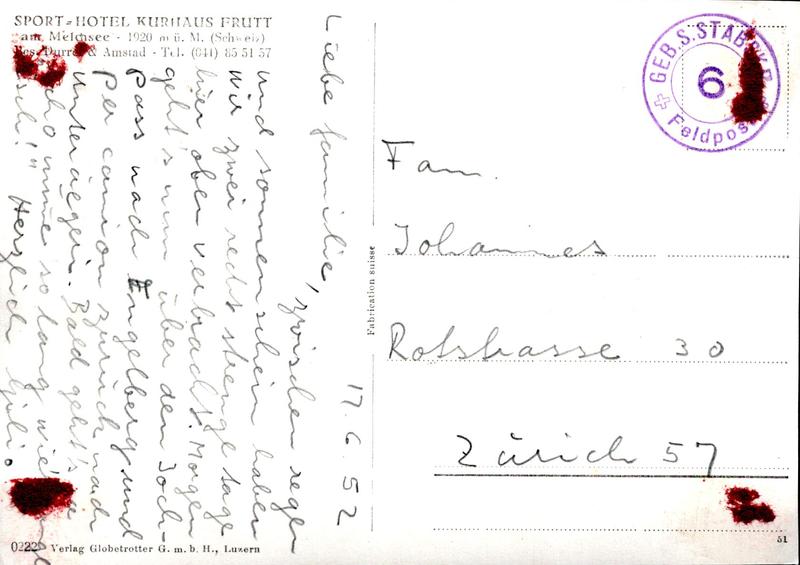 SPORT=HOTEL KURHAUS FRUTT
am Melchsee - 1920 m ü. M. (Schweiz)
Durrer & Amstad - Tel. (041) 85 51 57
17. 6. 52
Liebe familie, zwischen regen
und sonnenschein haben
wir zwei recht strenge tage
hier oben verbracht. Morgen
geht's nun über den Joch-
pass nach Engelberg und
per camion zurück nach
unterägeri. Bald geht's
umme so lang wie
sch!" Herzlich
0222 Verlag Globetrotter G. m. b. H., Luzern
Fabrication suisse
GEB. S. STAB
6
Feldpost
Fam.
Johannes
Rotstrasse 30
Zürich 57
51